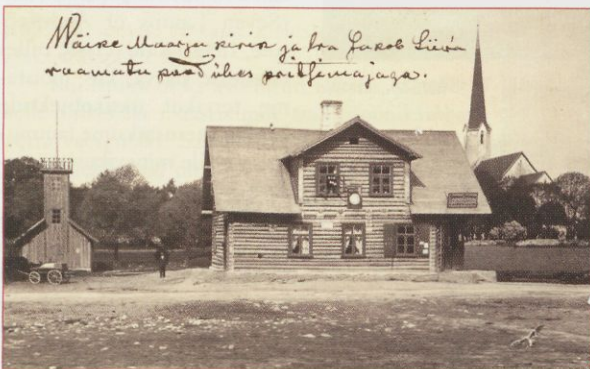 Wäike Maarja kirik ja hra Jakob Liiw'a
raamatu pood ühes pritsimajaga.